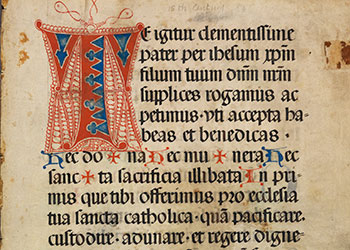 T E igitur clementissime
pater per ihesum xp̄m
filium tuum dn̄m nr̄m
supplices rogamus ac
petimus · vti accepta ha
beas et benedicas ·
Hec do ✝ na Hec mu ✝ nera Hec
sanc ✝ ta sacrificia illibata In pri
mis que tibi offerimus pro ecclesia
tua sancta catholica · quā pacificare ·
custodire · adunare · et regere digne